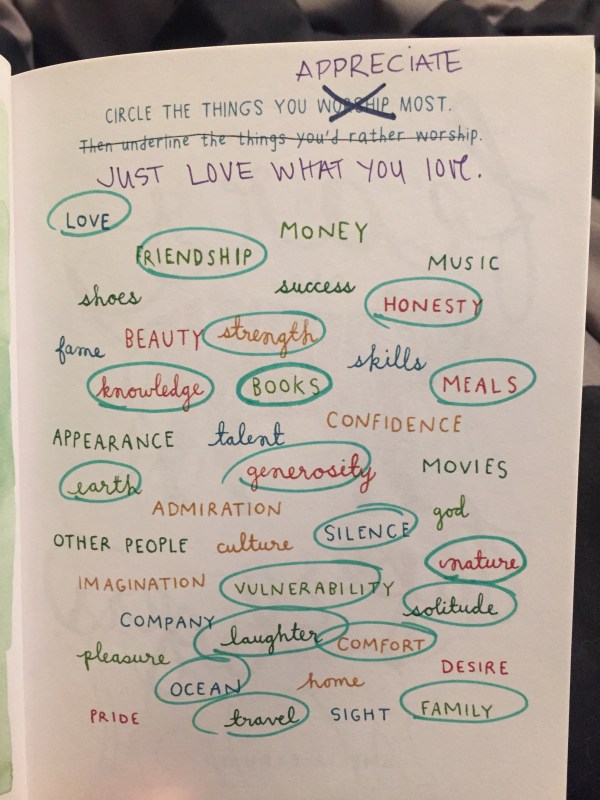 APPRECIATE
CIRCLE THE THINGS YOU WORSHIP MOST.
Then underline the things you'd rather worship.
JUST LOVE WHAT YOU love.
LOVE
MONEY
FRIENDSHIP
MUSIC
shoes
success
HONESTY
fame
BEAUTY
strength
skills
knowledge
BOOKS
MEALS
APPEARANCE
talent
CONFIDENCE
earth
generosity
MOVIES
ADMIRATION
god
OTHER PEOPLE
culture
SILENCE
nature
IMAGINATION
VULNERABILITY
solitude
COMPANY
laughter
COMFORT
pleasure
DESIRE
OCEAN
home
PRIDE
travel
SIGHT
FAMILY